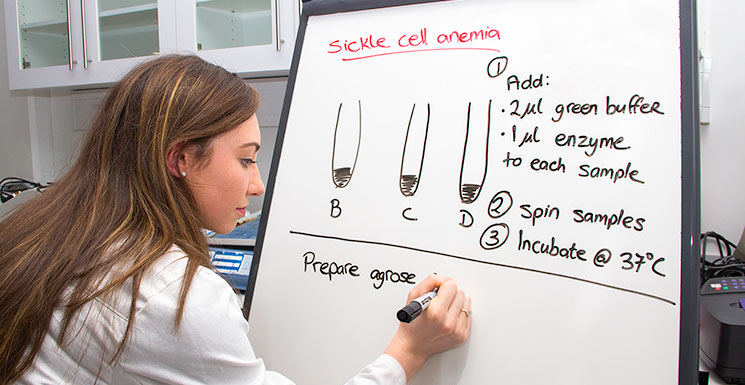 Sickle cell anemia
① Add:
• 2µl green buffer
• 1µl enzyme
to each sample
B C D
② Spin samples
③ Incubate @ 37°C
Prepare agrose